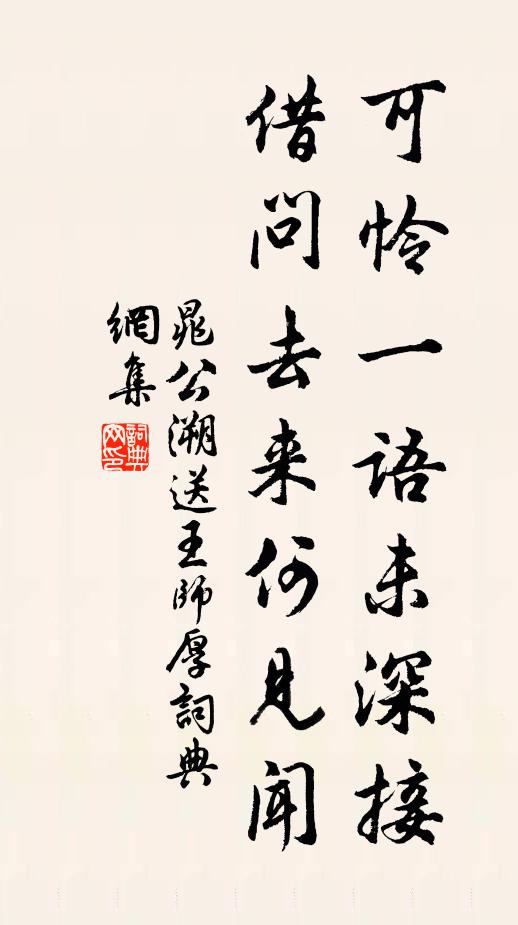 可怜一语未深接
借问去来何见闻
晁公溯送王師厚詞典
網集
詞典
网印